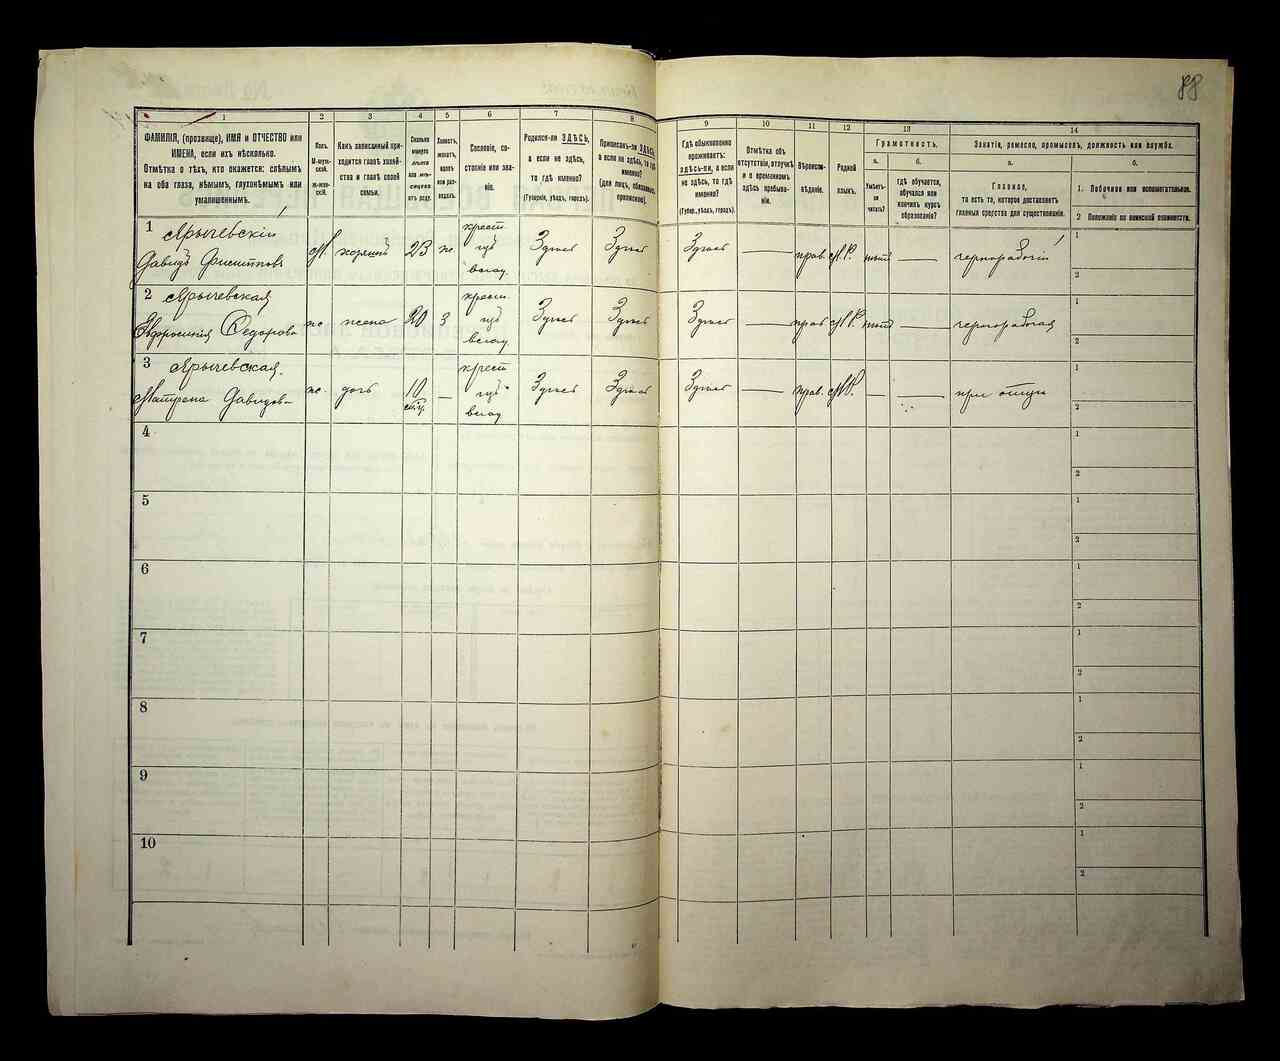 88
1
ФАМИЛІЯ, (прозвище), ИМЯ и ОТЧЕСТВО или
ИМЕНА, если ихъ нѣсколько.
Отмѣтка о тѣхъ, кто окажется: слѣпымъ
на оба глаза, нѣмымъ, глухонѣмымъ или
умалишеннымъ.
2
Полъ.
М-муж-
ской.
Ж-жен-
скій.
3
Какъ записанный при-
ходится главѣ хозяй-
ства и главѣ своей
семьи.
4
Сколько
минуло
лѣтъ
или мѣ-
сяцевъ
отъ роду.
5
Холостъ,
женатъ,
вдовъ
или раз-
веденъ.
6
Сословіе, со-
стояніе или зва-
ніе.
7
Родился-ли ЗДѢСЬ,
а если не здѣсь,
то гдѣ именно?
(Губернія, уѣздъ, городъ).
8
Приписанъ-ли ЗДѢСЬ,
а если не здѣсь, то гдѣ
именно?
(для лицъ, обязанныхъ
припискою).
9
Гдѣ обыкновенно
проживаетъ:
здѣсь-ли, а если
не здѣсь, то гдѣ
именно?
(Губер., уѣздъ, городъ).
10
Отмѣтка объ
отсутствіи, отлучкѣ
и о временномъ
здѣсь пребыва-
ніи.
11
Вѣроиспо-
вѣданіе.
12
Родной
языкъ.
13
Грамотность.
а.
Умѣетъ-
ли
читать?
б.
гдѣ обучается,
обучался или
кончилъ курсъ
образованія?
14
Занятіе, ремесло, промыселъ, должность или служба.
а.
Главное,
то есть то, которое доставляетъ
главныя средства для существованія.
б.
1. Побочное или вспомогательное.
2 Положеніе по воинской повинности.
1
Ярычевскій
Давидъ М. хозяинъ 23 ж. крест. изъ Здѣсь Здѣсь Здѣсь — прав. М.Р. нѣтъ — чернорабочій 1
2
2
Ярычевская
Евфросинія Федорова ж. жена 20 З крест. изъ Здѣсь Здѣсь Здѣсь — прав М.Р. нѣтъ — чернорабочая 1
2
3
Ярычевская.
Матрена Давидова ж. дочь 10 — крест изъ Здѣсь Здѣсь Здѣсь — прав. М.Р. — — при отцѣ 1
2
4 1
2
5 1
2
6 1
2
7 1
2
8 1
2
9 1
2
10 1
2